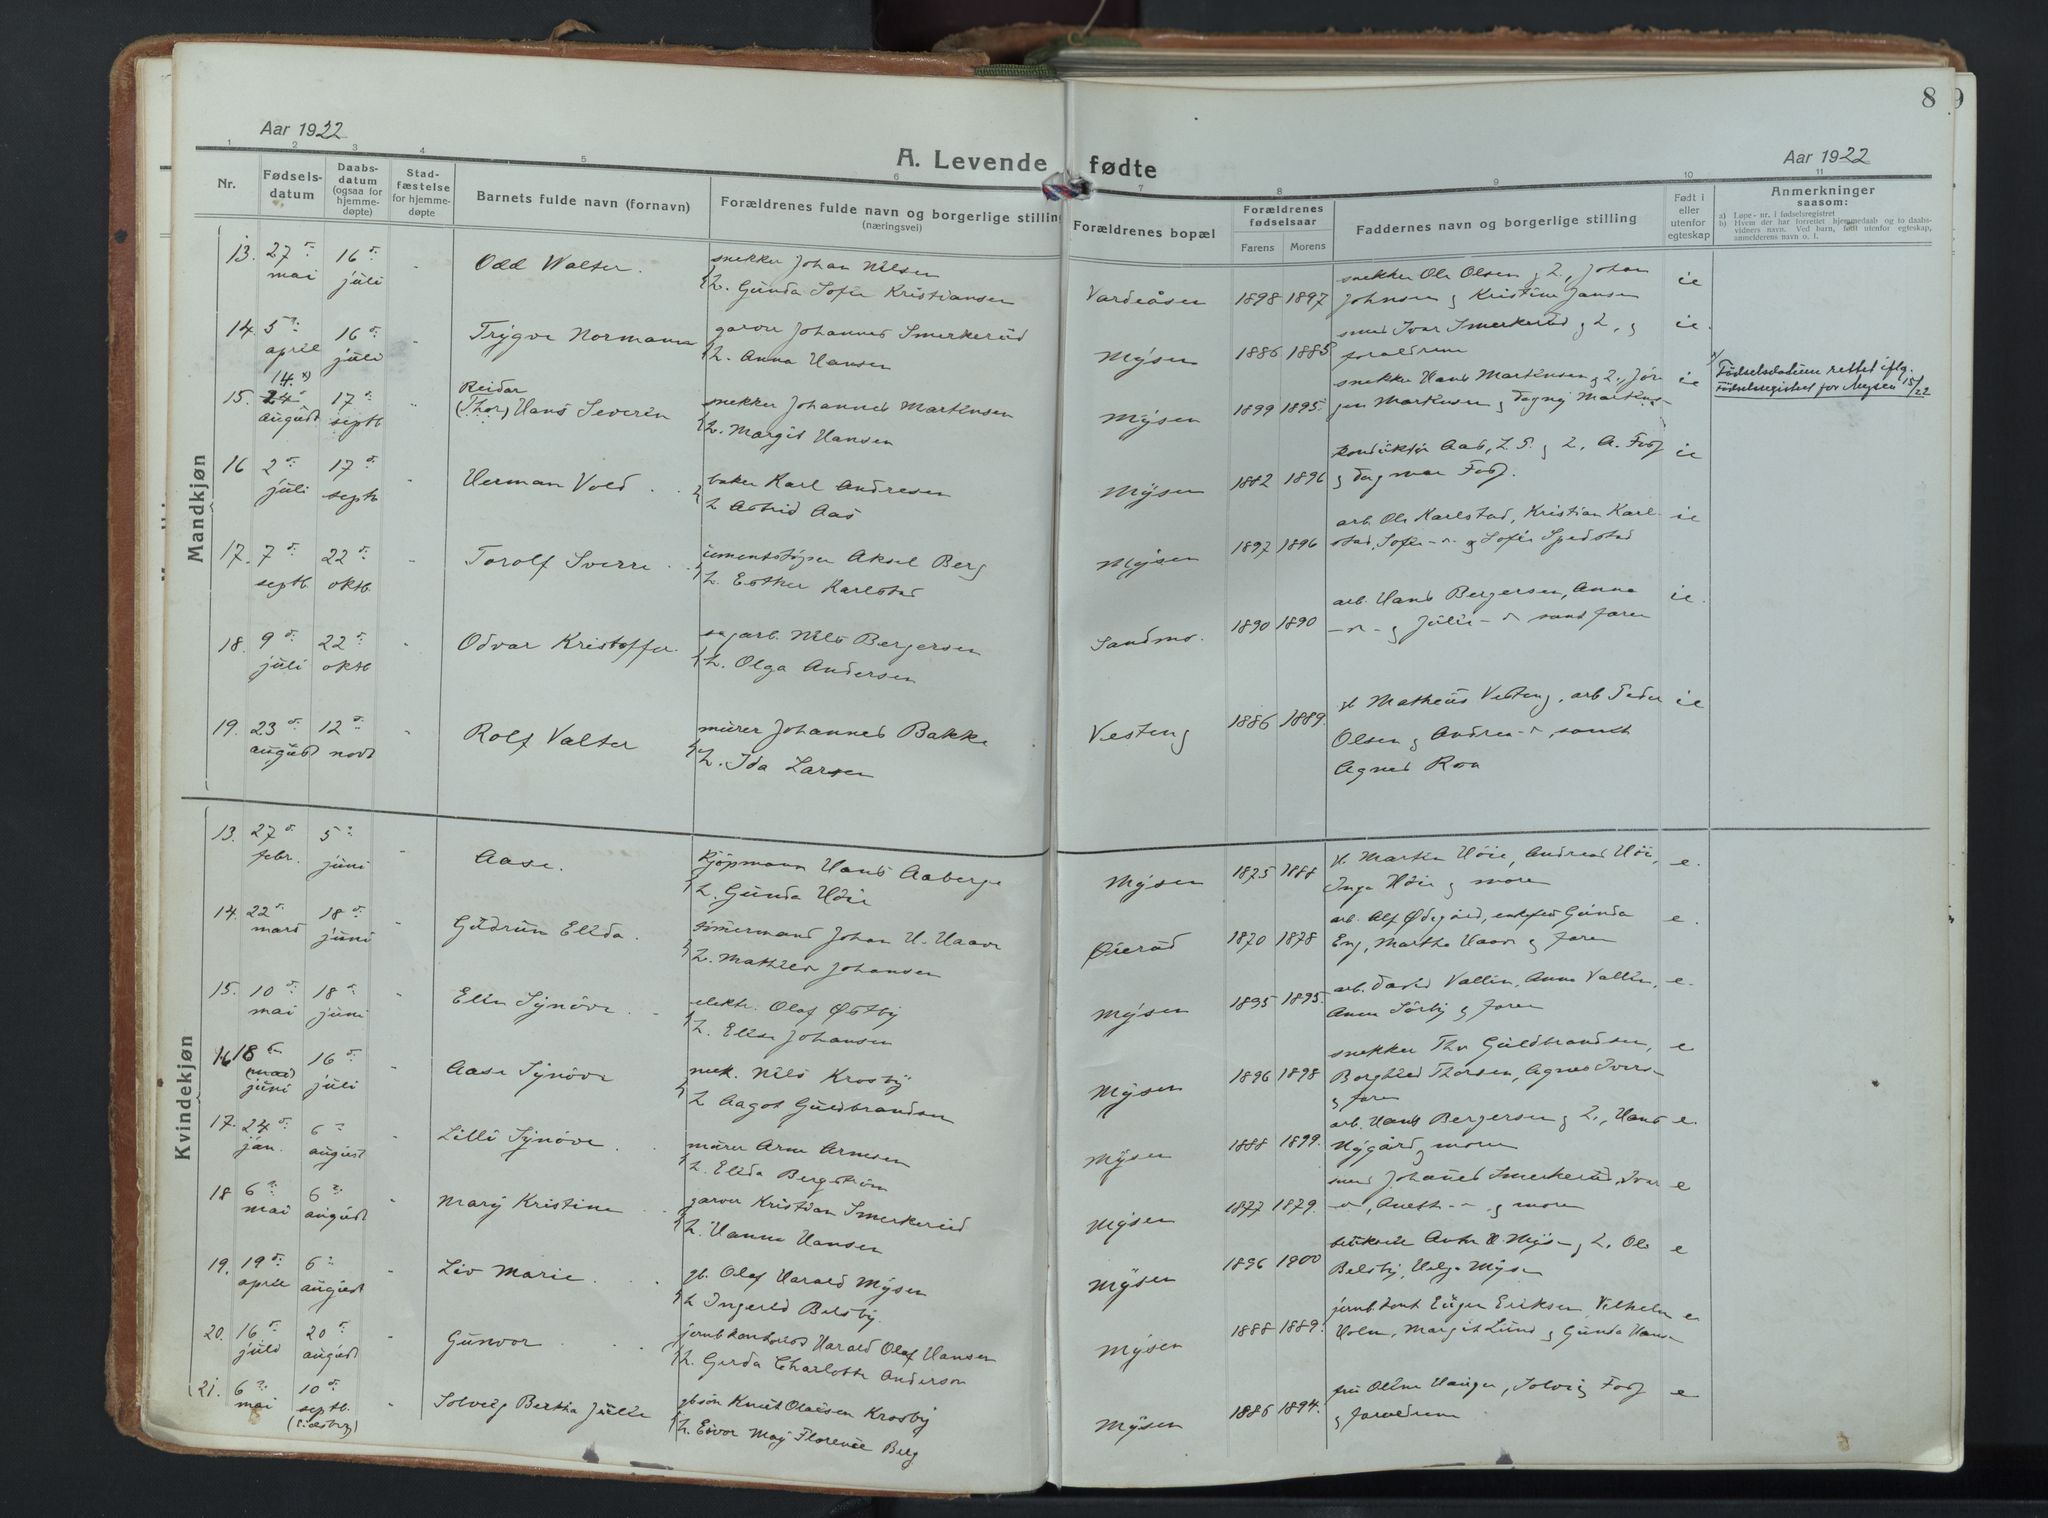 8 9
Aar 1922
A. Levende fødte
Aar 1922
1 2 3 4 5 6 7 8 9 10 11
Nr.
Fødsels-
datum
Daabs-
datum
(ogsaa for
hjemme-
døpte)
Stad-
fæstelse
for hjemme-
døpte
Barnets fulde navn (fornavn)
Forældrenes fulde navn og borgerlige stilling
(næringsvei)
Forældrenes bopæl
Forældrenes
fødselsaar
Farens Morens
Faddernes navn og borgerlige stilling
Født i
eller
utenfor
egteskap
Anmerkninger
saasom:
a) Løpe-nr. i fødselsregistret
b) Hvem der har forrettet hjemmedaab og to daabs-
vidners navn. Ved barn, født utenfor egteskap,
anmelderens navn o. l.
Mandkjøn
13. 27 mai 16 juli Odd Walter.
snekker Johan Nilsen
H. Gunda Sofie Kristiansen
Vardeåsen 1898 1897
snekker Ole Olsen & H., Johan
Johnsen & Kristine Jansen
ie
14. 5 april 16 juli Trygve Normann
garver Johannes Smerkerud
H. Anna Hansen
Mysen 1886 1885
smed Ivar Smerkerud & H., &
forældrene
ie.
14. x)
15. 24 august 17 septb
Reidar
(Thor) Hans Severin
snekker Johannes Martinsen
H. Margit Hansen
Mysen 1899 1895.
snekker Hans Martinsen & H., Jør
gen Martinsen & Dagny Martins-
ie
x) Fødselsdatum rettet iflg.
Fødselsregistret for Mysen 15/22
16 2 juli 17 septb Herman Vold
baker Karl Andresen
H Astrid Aas
Mysen 1882 1896
konduktør Aas, & H. A. Foss
& Dagmar Foss.
ie
17. 7 septb. 22 oktb. Torolf Sverre
cementstøper Aksel Berg
H. Esther Karlstad
Mysen 1897 1896
arb. Ole Karlstad, Kristian Karl-
stad, Sofie -"- & Sofie Spedstad
ie
18. 9 juli 22 oktb Odvar Kristoffer
sagarb. Nils Bergersen
H. Olga Andersen
Sandmo. 1890 1890
arb. Hans Bergersen, Anna
-"- & Julie -"- samt faren
ie.
19. 23 august 12 novb Rolf Valter
murer Johannes Bakke
H. Ida Larsen
Vesteng 1886 1889.
Matheus Vesteng, arb Peder
Olsen & Andrea -"-, samt
Agnes Roa
ie
Kvindekjøn
13. 27 febr. 5 juni Aase.
kjøpmann Hans Aaberge
H. Gunda Höie
Mysen 1875 1888
Martin Höie, Andreas Höie,
Inga Höie & moren
e.
14. 22 mars 18 juni Gudrun Ellda.
tømermand Johan H. Haave
H. Mathilde Johansen
Øierud 1870 1878
arb. Alf Ødegård, enkefru Gunda
Eng, Martha Haave & faren
e.
15. 10 mai 18 juni Elin Synöve
elektr. Olaf Østby
H. Elise Johansen
Mysen 1895 1895.
arb. David Vallin, Anna Vallin,
Anna Sörby & faren
e.
16 18 (mai) juni 16 juli Aase Synöve
mek. Nils Krosby
H Aagot Guldbrandsen
Mysen 1896 1898
snekker Thv Guldbrandsen,
Borghild Thorsen, Agnes Ivers-
& faren
e
17. 24 jan. 6 august Lilli Synöve
murer Arne Arnesen
H. Ellda Bergström
Mysen 1888 1899.
arb. Hans Bergersen & H., Hans
Nygård & moren
e.
18 6 mai 6 august Mary Kristine
garver Kristian Smerkerud
H. Hanna Hansen
Mysen 1877 1879.
smed Johannes Smerkerud, Ivar
-"-, Aneth -"- & moren
e
19. 19 april 6 august Liv Marie
gb. Olaf Harald Mysen
H Ingerid Belsby.
Mysen 1896 1900
Anton H. Mysen & H. Ole
Belsby, Helga Mysen
e
20. 16 juli 20 august Gunvor
jernb kontorist Harald Olaf Hansen
H. Gerda Charlotte Anderson
Mysen 1888 1889.
jernb.kont Eugen Eriksen, Vilhelm
Holm, Margit Lund & Gunda Hansen
e
21. 6 mai 10 septb. (Eidsberg) Solveig Bertha Julie
gbsön Knut Olausen Krosby
H. Eivor May Florence Berg
Mysen 1886 1894.
fru Oline Hanger, Solveig Foss
& forældrene
e